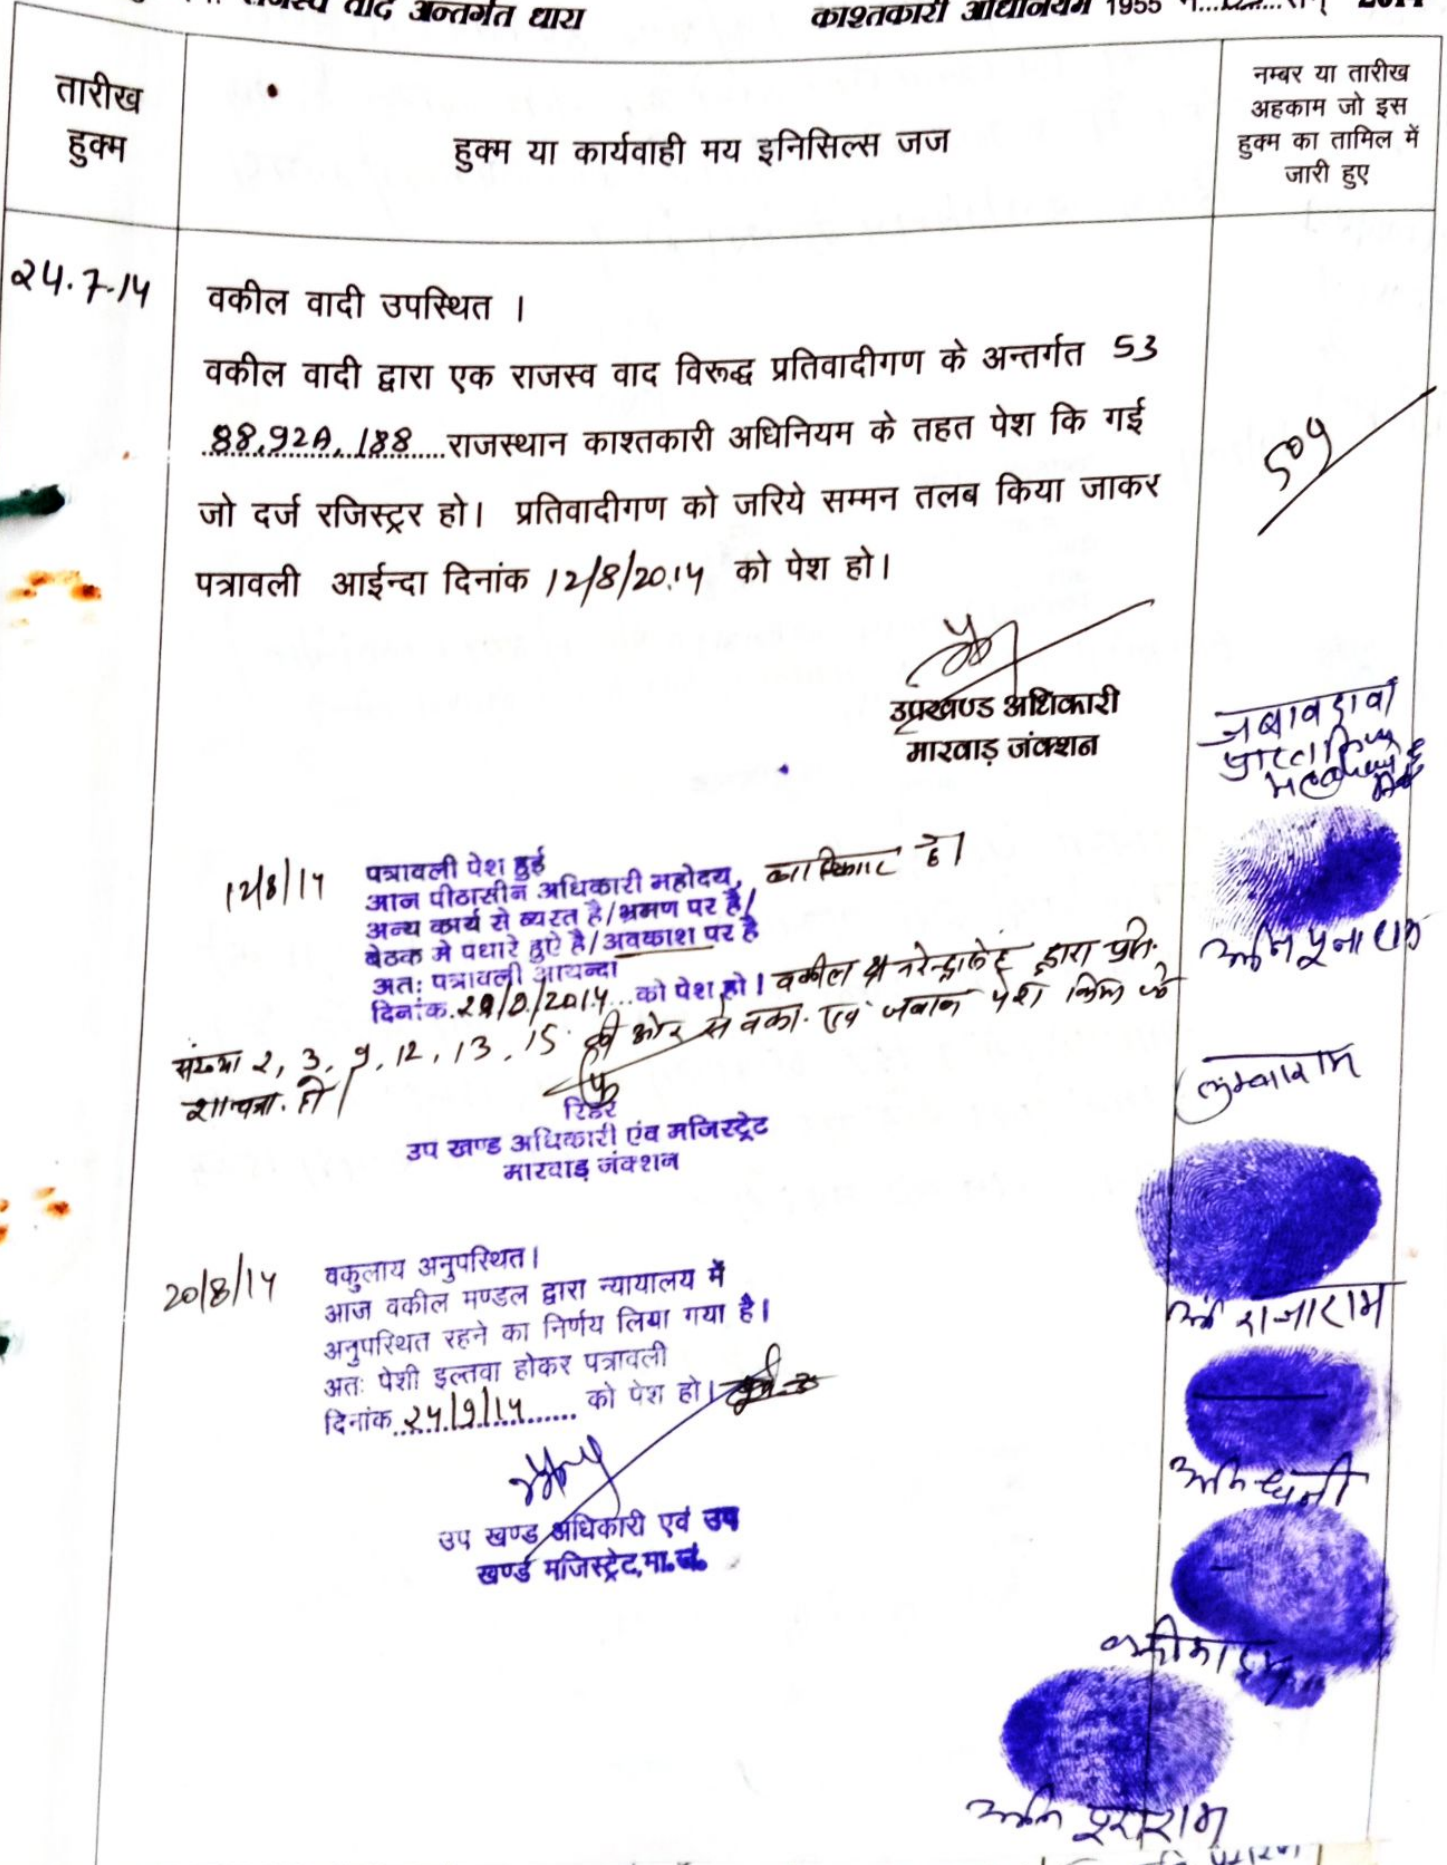 राजस्व वाद अन्तर्गत धारा काश्तकारी अधिनियम 1955 2014
तारीख हुक्म
हुक्म या कार्यवाही मय इनिसिल्स जज
नम्बर या तारीख
अहकाम जो इस
हुक्म का तामिल में
जारी हुए
24.7.14
वकील वादी उपस्थित ।
वकील वादी द्वारा एक राजस्व वाद विरूद्ध प्रतिवादीगण के अन्तर्गत 53
88,92A, 188 राजस्थान काश्तकारी अधिनियम के तहत पेश कि गई
जो दर्ज रजिस्ट्रर हो। प्रतिवादीगण को जरिये सम्मन तलब किया जाकर
पत्रावली आईन्दा दिनांक 12/8/2014 को पेश हो।
उपखण्ड अधिकारी
मारवाड़ जंक्शन
जबाव दावा
12/8/14
पत्रावली पेश हुई
आज पीठासीन अधिकारी महोदय, है।
अन्य कार्य से व्यस्त है/भ्रमण पर है/
बैठक मे पधारे हुऐ है/अवकाश पर है
अतः पत्रावली आयन्दा
दिनांक को पेश हो। वकील श्री द्वारा प्रति.
संख्या 2, 3, 9, 12, 13, 15 की ओर से वका. एवं जवाब पेश किये
रिडर
उप खण्ड अधिकारी एंव मजिस्ट्रेट
मारवाड़ जंक्शन
लुम्बाराम
20/8/14
वकुलाय अनुपस्थित।
आज वकील मण्डल द्वारा न्यायालय में
अनुपस्थित रहने का निर्णय लिया गया है।
अतः पेशी इल्तवा होकर पत्रावली
दिनांक 24/9/14 को पेश हो।
राजाराम
उप खण्ड अधिकारी एवं उप
खण्ड मजिस्ट्रेट, मा.जं.